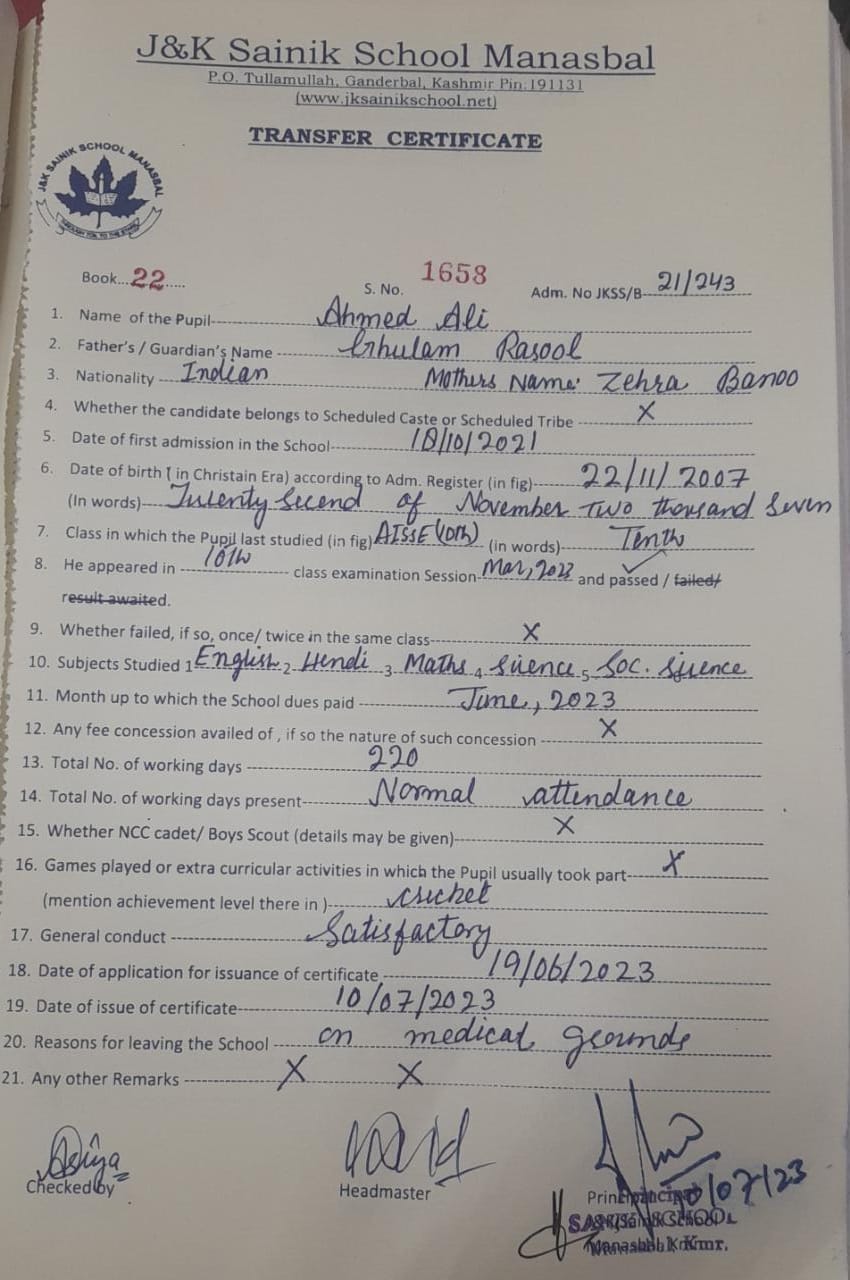 J&K Sainik School Manasbal
P.O. Tullamullah, Ganderbal, Kashmir Pin:191131
(www.jksainikschool.net)
TRANSFER CERTIFICATE
J&K SAINIK SCHOOL MANASBAL
Book...22..... S. No. 1658 Adm. No JKSS/B 21/243
1. Name of the Pupil Ahmed Ali
2. Father's / Guardian's Name Ghulam Rasool
3. Nationality Indian Mothers Name: Zehra Banoo
4. Whether the candidate belongs to Scheduled Caste or Scheduled Tribe X
5. Date of first admission in the School 18/10/2021
6. Date of birth ( in Christain Era) according to Adm. Register (in fig) 22/11/2007
(In words) Twenty Second of November Two thousand Seven
7. Class in which the Pupil last studied (in fig) AISSE (10th) (in words) Tenth
8. He appeared in 10th class examination Session Mar, 2023 and passed / failed/
result awaited.
9. Whether failed, if so, once/ twice in the same class X
10. Subjects Studied 1 English 2 Hendi 3 Maths 4 Science 5 Soc. Science
11. Month up to which the School dues paid June, 2023
12. Any fee concession availed of , if so the nature of such concession X
13. Total No. of working days 220
14. Total No. of working days present Normal attendance
15. Whether NCC cadet/ Boys Scout (details may be given) X
16. Games played or extra curricular activities in which the Pupil usually took part X
(mention achievement level there in ) cricket
17. General conduct Satisfactory
18. Date of application for issuance of certificate 19/06/2023
19. Date of issue of certificate 10/07/2023
20. Reasons for leaving the School on medical grounds
21. Any other Remarks X X
Asiya
Checked by Headmaster Principal 10/07/23